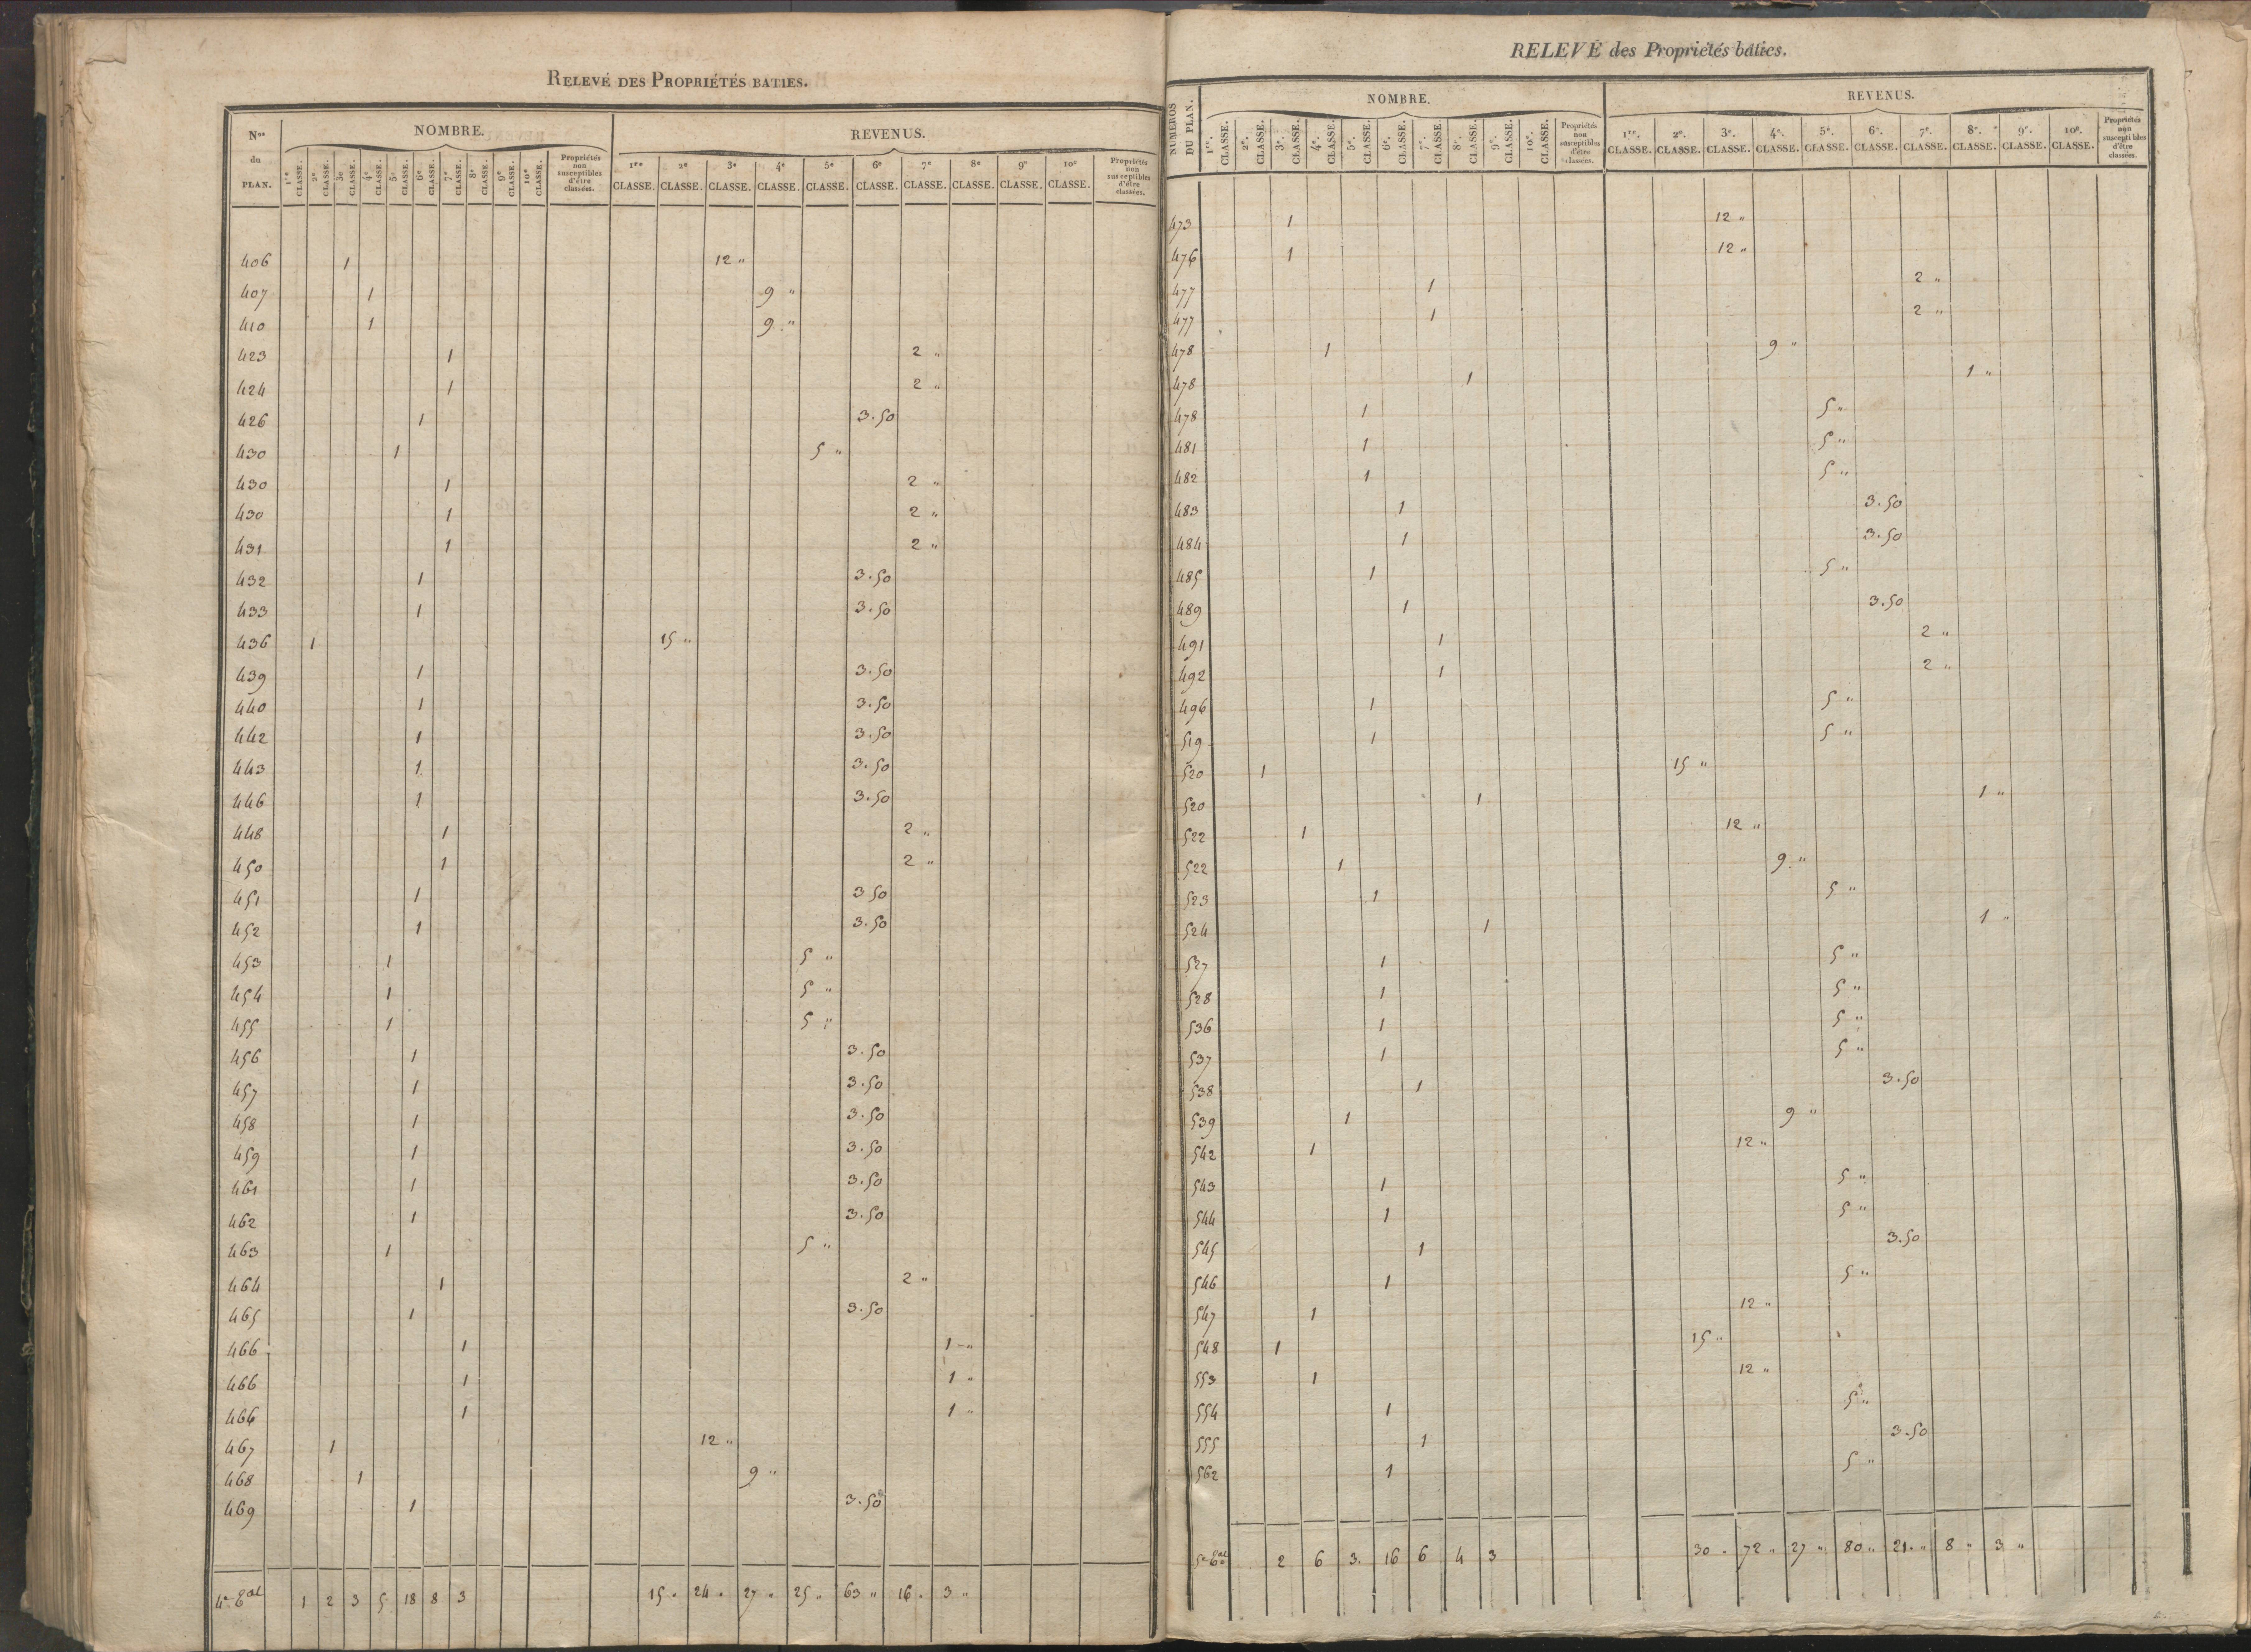 RELEVÉ DES PROPRIÉTÉS BATIES.
Nos du PLAN. NOMBRE. REVENUS.
1re CLASSE. 2e CLASSE. 3e CLASSE. 4e CLASSE. 5e CLASSE. 6e CLASSE. 7e CLASSE. 8e CLASSE. 9e CLASSE. 10e CLASSE. Propriétés non susceptibles d'être classées. 1re CLASSE. 2e CLASSE. 3e CLASSE. 4e CLASSE. 5e CLASSE. 6e CLASSE. 7e CLASSE. 8e CLASSE. 9e CLASSE. 10e CLASSE. Propriétés non susceptibles d'être classées.
406 1 12 "
407 1 9 "
410 1 9 "
423 1 2 "
424 1 2 "
426 1 3.50
430 1 5 "
430 1 2 "
430 1 2 "
431 1 2 "
432 1 3.50
433 1 3.50
436 1 15 "
439 1 3.50
440 1 3.50
442 1 3.50
443 1 3.50
446 1 3.50
448 1 2 "
450 1 2 "
451 1 3 50
452 1 3.50
453 1 5 "
454 1 5 "
455 1 5 "
456 1 3.50
457 1 3.50
458 1 3.50
459 1 3.50
461 1 3.50
462 1 3.50
463 1 5 "
464 1 2 "
465 1 3.50
466 1 1 "
466 1 1 "
466 1 1 "
467 1 12 "
468 1 9 "
469 1 3.50
1 2 3 5 18 8 3 15 " 24 " 27 " 25 " 63 " 16 " 3 "
RELEVÉ des Propriétés bâties.
NUMÉROS DU PLAN. NOMBRE. REVENUS.
1re. CLASSE. 2e. CLASSE. 3e. CLASSE. 4e. CLASSE. 5e. CLASSE. 6e. CLASSE. 7e. CLASSE. 8e. CLASSE. 9e. CLASSE. 10e. CLASSE. Propriétés non susceptibles d'être classées. 1re. CLASSE. 2e. CLASSE. 3e. CLASSE. 4e. CLASSE. 5e. CLASSE. 6e. CLASSE. 7e. CLASSE. 8e. CLASSE. 9e. CLASSE. 10e. CLASSE. Propriétés non susceptibles d'être classées.
473 1 12 "
476 1 12 "
477 1 2 "
477 1 2 "
478 1 9 "
478 1 1 "
478 1 5 "
481 1 5 "
482 1 5 "
483 1 3.50
484 1 3.50
485 1 5 "
489 1 3.50
491 1 2 "
492 1 2 "
496 1 5 "
519 1 5 "
520 1 15 "
520 1 1 "
522 1 12 "
522 1 9 "
523 1 5 "
524 1 1 "
527 1 5 "
528 1 5 "
536 1 5 "
537 1 5 "
538 1 3.50
539 1 9 "
542 1 12 "
543 1 5 "
544 1 5 "
545 1 3.50
546 1 5 "
547 1 12 "
548 1 15 "
553 1 12 "
554 1 5 "
555 1 3.50
562 1 5 "
2 6 3 16 6 4 3 30 " 72 " 27 " 80 " 21 " 8 " 3 "